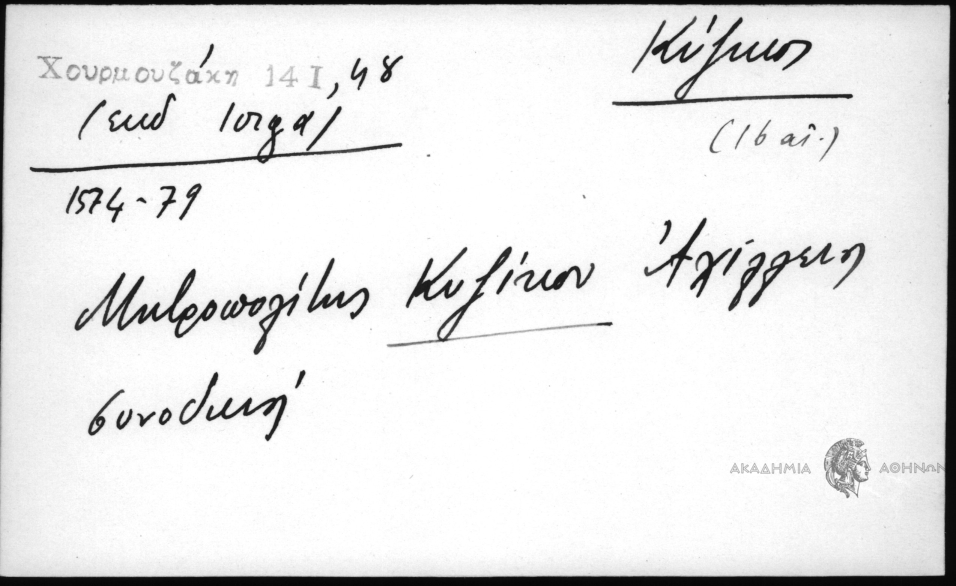 Κύζικος
Χουρμουζάκη 14 Ι, 48
(εκδ Ιοργα)
(16 αι.)
1574-79
Μητροπολίτης Κυζίκου Ἀχίλλειος
συνοδική
ΑΚΑΔΗΜΙΑ ΑΘΗΝΩΝ